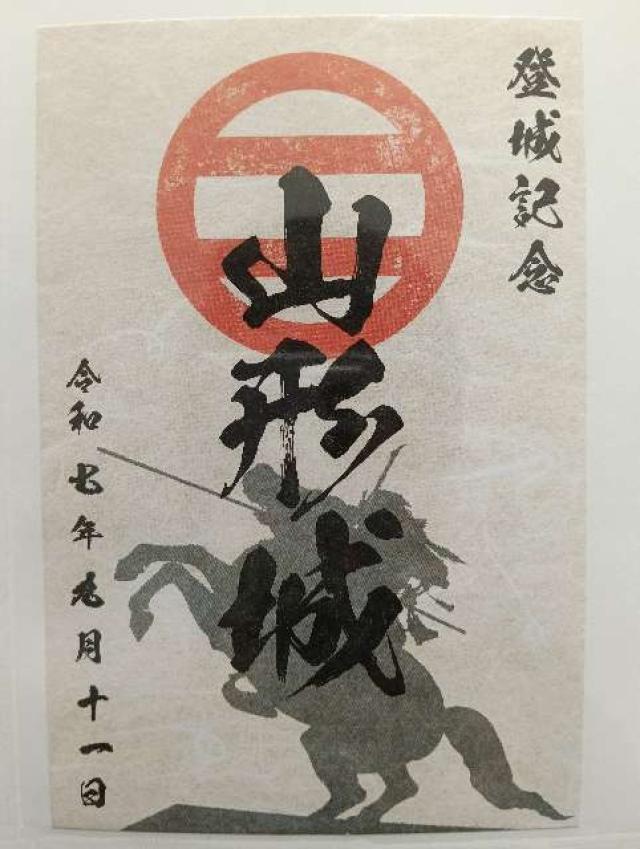 登城記念
山形城
令和七年九月十一日